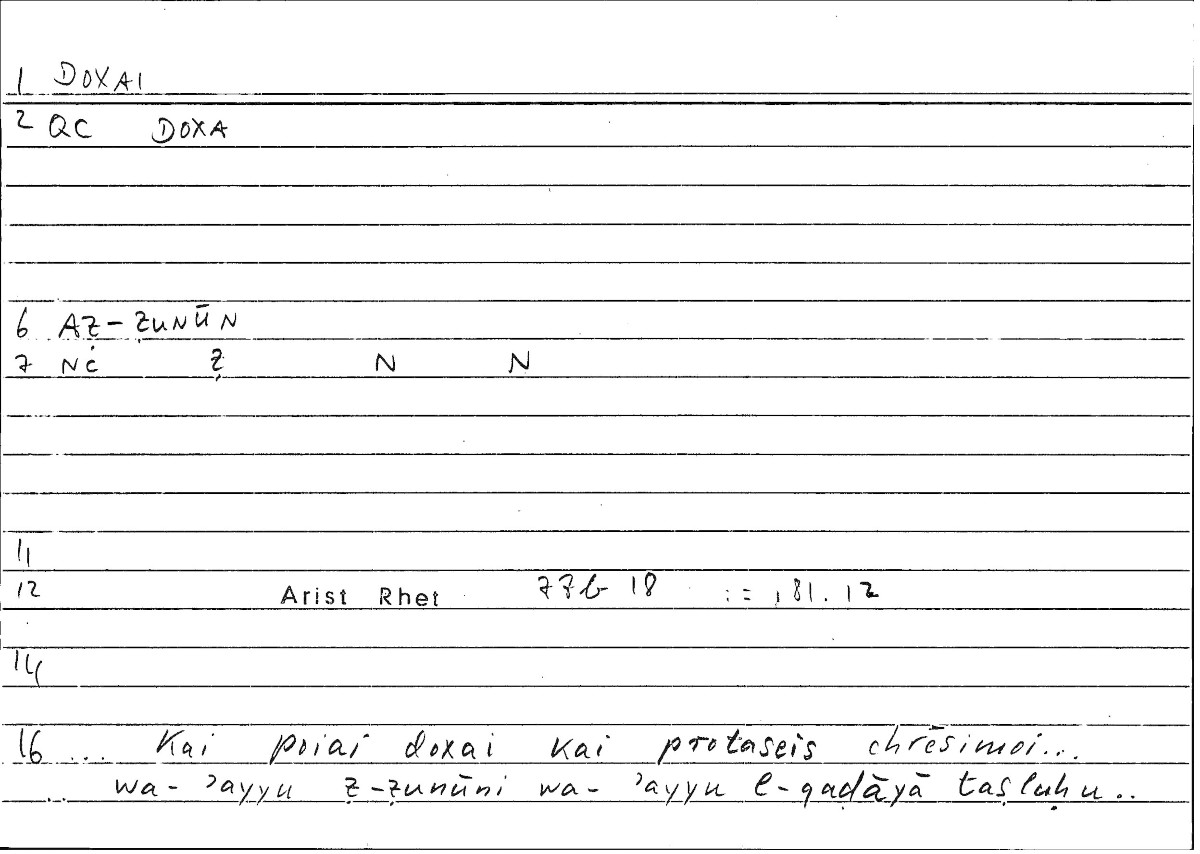 1 DOXAI
2 QC DOXA
6 AẒ-ẒUNŪN
7 NĊ Ẓ N N
11
12 Arist Rhet 77b 18 := ,81.12
14
16 ... Kai poiai doxai kai protaseis chrēsimoi...
.. wa- ʾayyu ẓ-ẓunūni wa- ʾayyu l-qaḍāyā taṣluḥu..